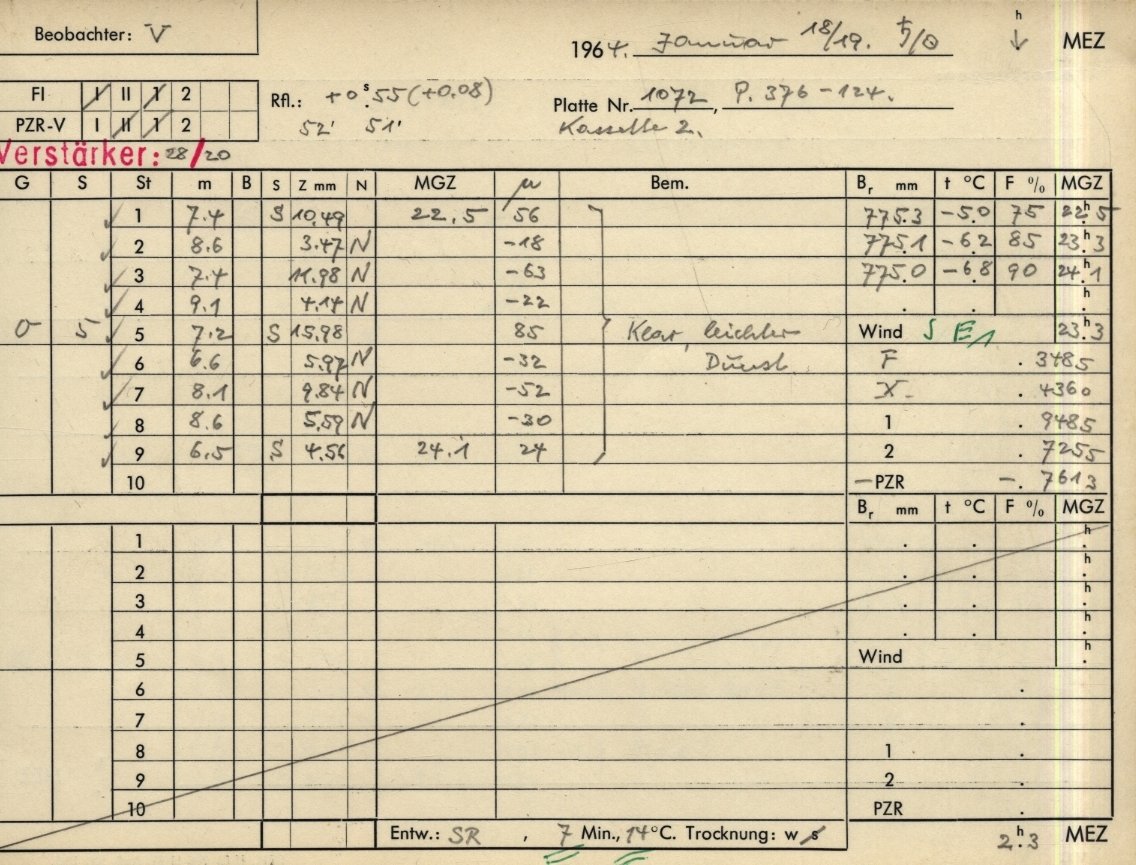 Beobachter: V
1964. Januar 18/19. ♄/☉ h ↓ MEZ
FI I II 1 2
Rfl.: +0ˢ.55 (+0.08) Platte Nr. 1072, P. 376-124.
PZR-V I II 1 2
52' 51' Kassette 2.
Verstärker: 28/20
G S St m B S Z mm N MGZ μ Bem. Br mm t °C F % MGZ
1 7.4 S 10.49 22.5 56 775.3 -5.0 75 22ʰ.5
2 8.6 3.47 N -18 775.1 -6.2 85 23ʰ.3
3 7.4 11.98 N -63 775.0 -6.8 90 24ʰ.1
4 9.1 4.14 N -22 . . h.
0 5 5 7.2 S 15.98 85 Klar, leichter Wind S E1 23ʰ.3
6 6.6 5.97 N -32 Dunst F . 3485
7 8.1 9.84 N -52 X . 4360
8 8.6 5.59 N -30 1 . 9485
9 6.5 S 4.56 24.1 24 2 . 7255
10 -PZR -. 7613
Br mm t °C F % MGZ
1 . . h.
2 . . h.
3 . . h.
4 . . h.
5 Wind h.
6 .
7 .
8 1 .
9 2 .
10 PZR .
Entw.: SR, 7 Min., 14 °C. Trocknung: w s 2ʰ.3 MEZ